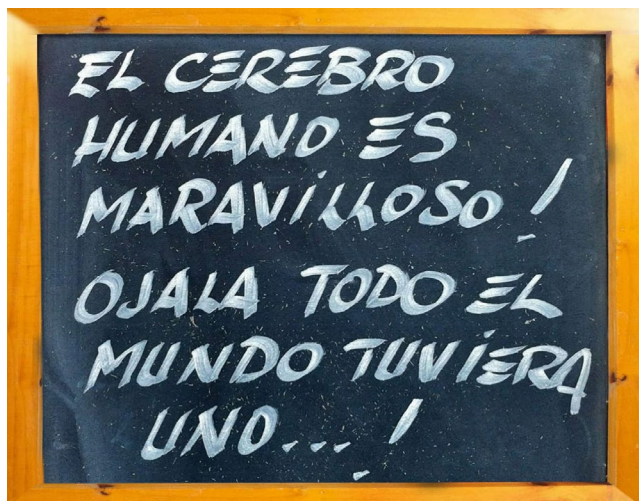 EL CEREBRO
HUMANO ES
MARAVILLOSO !
OJALA TODO EL
MUNDO TUVIERA
UNO... !